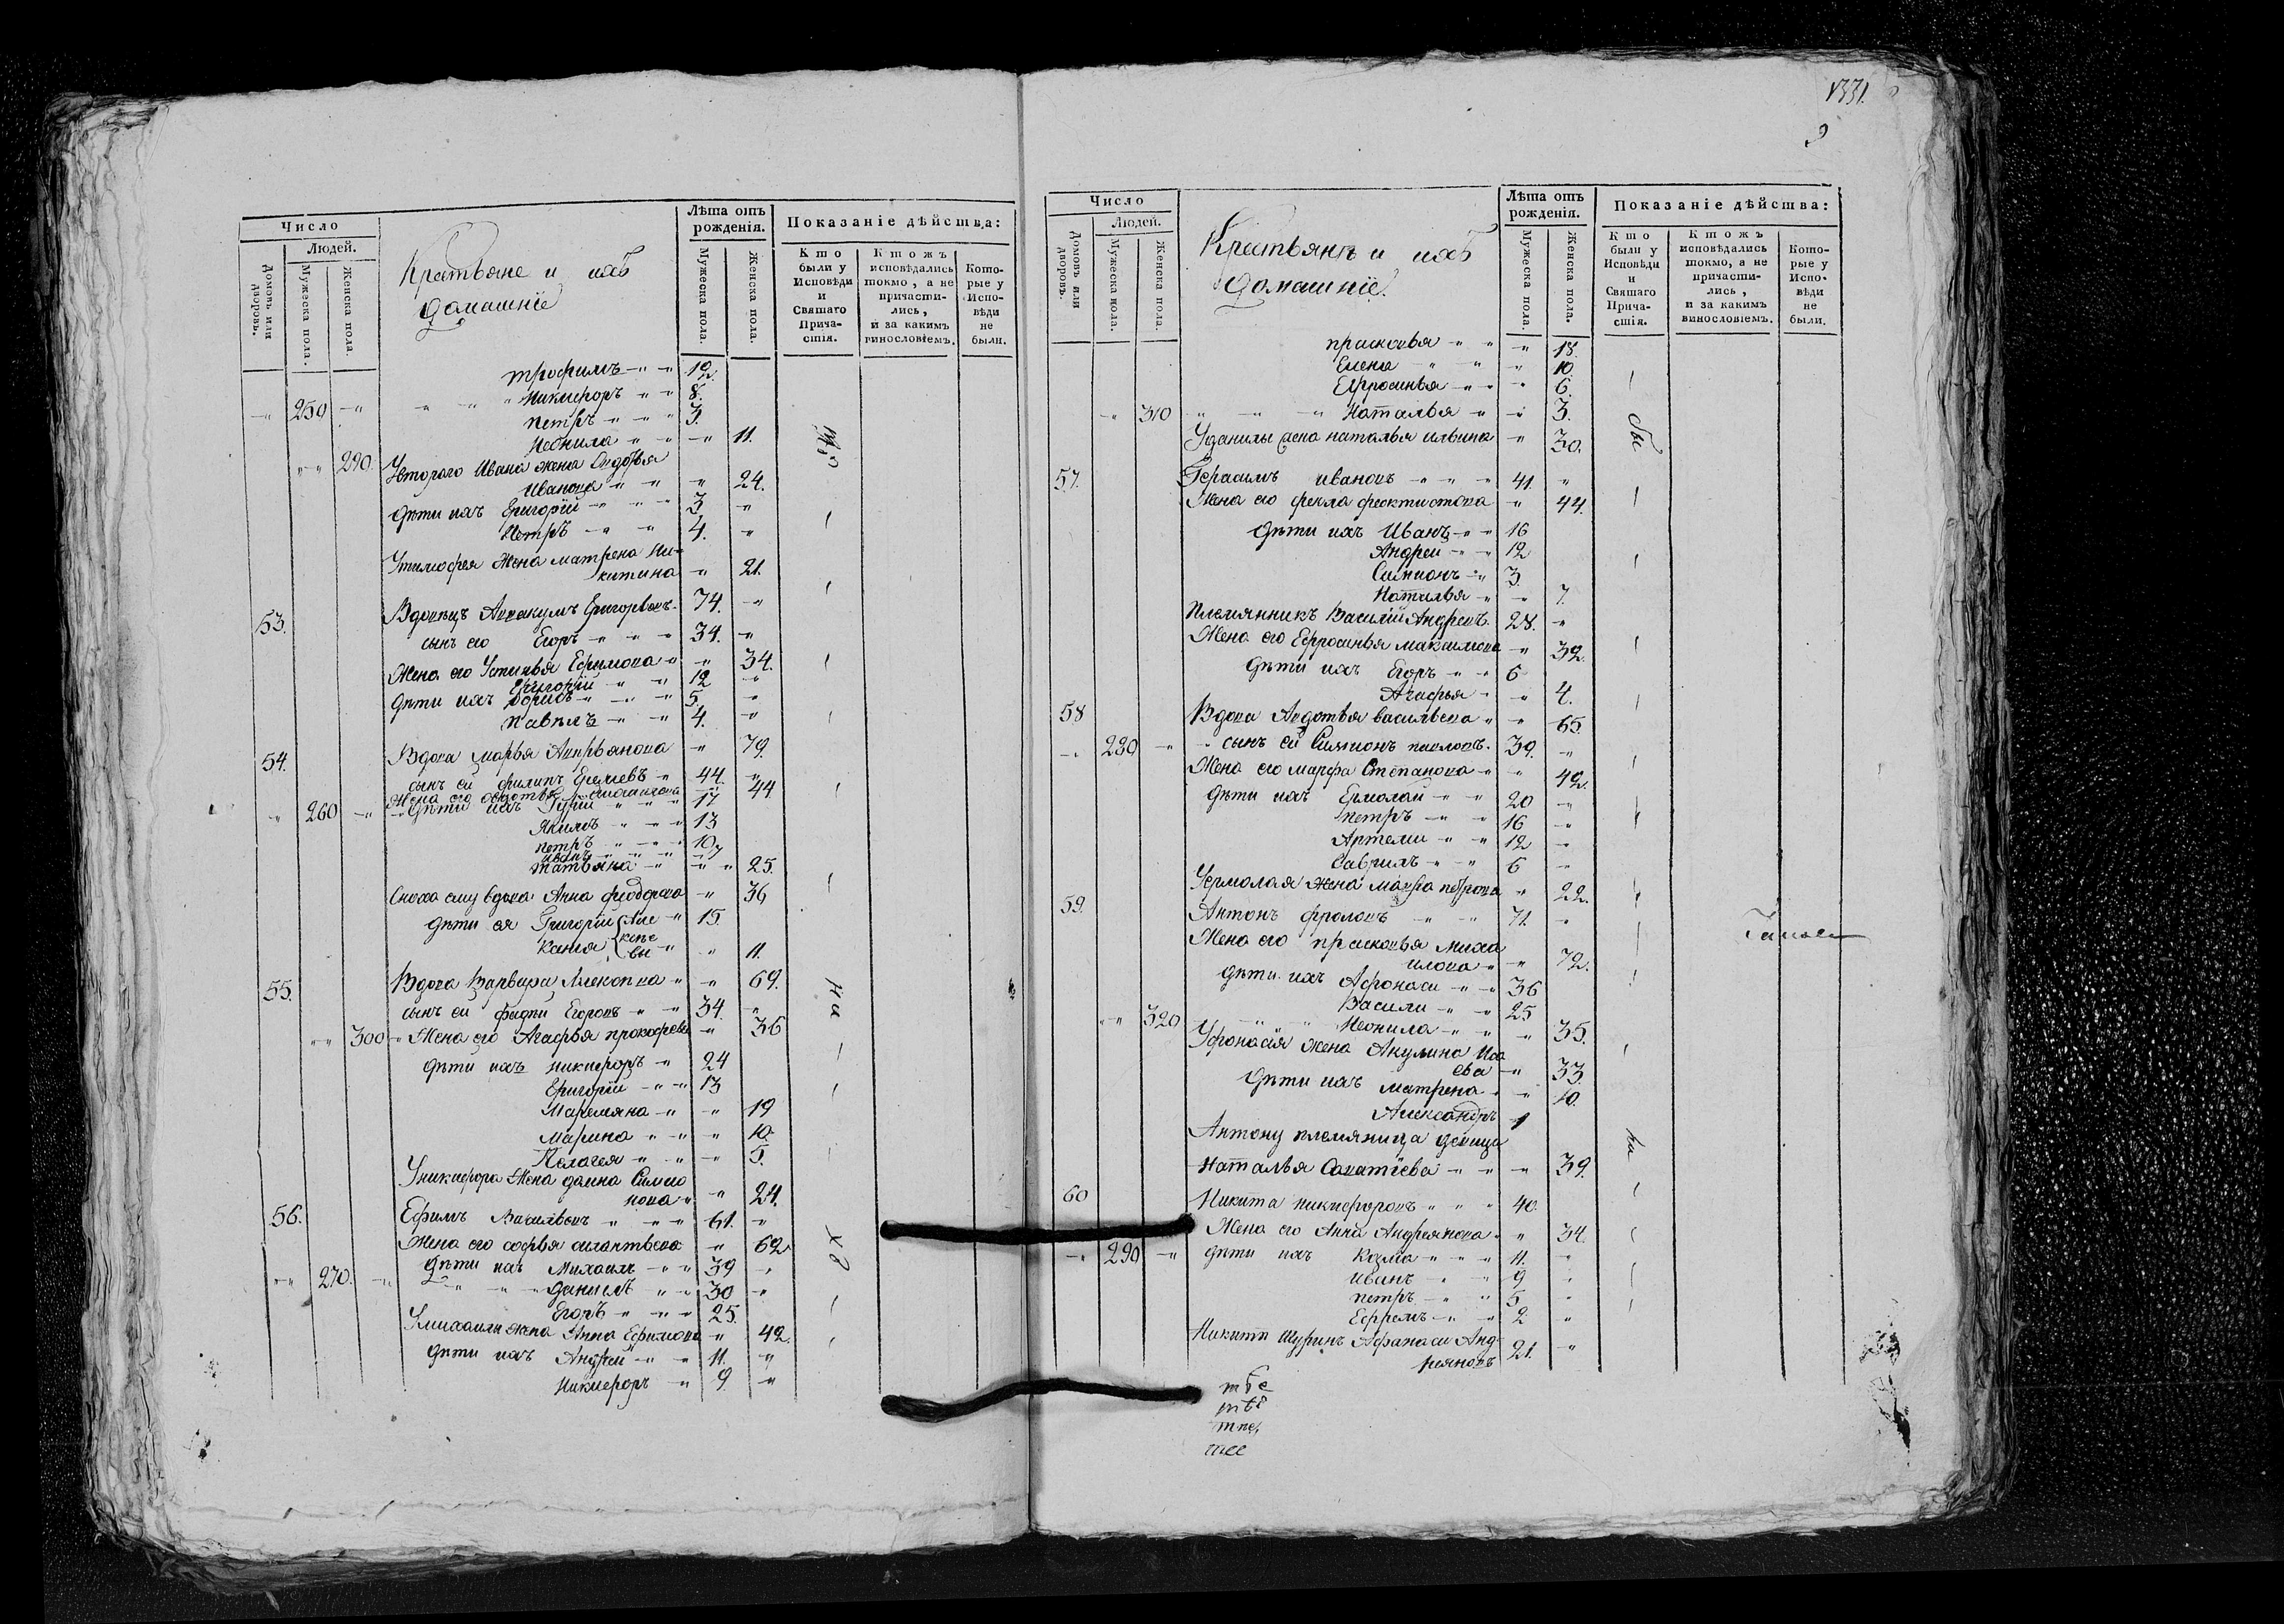 Число
Людей.
Домовъ или дворовъ.
Мужеска пола.
Женска пола.
Крестьяне и ихъ
домашніе
Лѣта отъ рожденія.
Мужеска пола.
Женска пола.
Показаніе дѣйства:
Кто были у Исповѣди и Святаго Причастія.
Ктожъ исповѣдались токмо, а не причастились, и за какимъ винословіемъ.
Которые у Исповѣди не были.
трофимъ 12.
250 Никифоръ 8.
петръ 3.
Неонила 11.
290. Увтораго Ивана жена Авдотья
Иванова 24.
дѣти ихъ Григорій 3
Петръ 4.
Утимофея Жена матрена Ни-
китина 21.
53. Вдовецъ Аввакумъ Григорьевъ 74.
сынъ его Егоръ 34.
Жена его Устинья Ефимова 34.
Григорій 12
дѣти ихъ Борисъ 5.
павелъ 4.
54. Вдова марья Андрьянова 79.
сынъ ей филипъ 44.
Жена его 44
260 дѣти ихъ Гурій 17
Якимъ 13
петръ 10
иванъ 7
татьяна 25.
Сноха ему вдова Анна феодорова 36
дѣти ея Григорій Але 15.
Ксенія ксѣе
вы 11.
55. Вдова Варвара 69.
сынъ ей фадѣй Егоровъ 34.
300 Жена его Агафья прокофьева 36
дѣти ихъ никифоръ 24
Григорій 13
Маремяна 19
Марина 10.
Пелагея 5.
Уникифора Жена домна Симио
нова 24.
56. Ефимъ Васильевъ 61.
Жена его софья силантьева 62
дѣти ихъ Михаилъ 39
270. данилъ 30
Егоръ 25.
Умихаила жена Анна Ефимова 42.
дѣти ихъ Андрей 11.
Никифоръ 9
1331.
Число
Людей.
Домовъ или дворовъ.
Мужеска пола.
Женска пола.
Крестьянѣ и ихъ
домашніе.
Лѣта отъ рожденія.
Мужеска пола.
Женска пола.
Показаніе дѣйства:
Кто были у Исповѣди и Святаго Причастія.
Ктожъ исповѣдались токмо, а не причастились, и за какимъ винословіемъ.
Которые у Исповѣди не были.
прасковья 18.
Елена 10.
Ефросинья 6.
310 Наталья 3.
Уданилы жена наталья ильина 30.
57. Герасимъ ивановъ 41.
Жена его фекла феоктистова 44.
дѣти ихъ Иванъ 16
Андреи 12
Симионъ 3.
Наталья 7.
Племянникъ Василіи Андреевъ 28.
Жена его Ефросинья максимова 32.
дѣти ихъ Егоръ 6
Агафья 4.
58 Вдова Авдотья васильева 65.
280 сынъ ей Симионъ павловъ 39.
Жена его марфа Степанова 42.
дѣти ихъ Ермолай 20
петръ 16
Артеми 12
Гаврилъ 6
Уермолая жена марѳа петрова 22.
59. Антонъ фроловъ 71.
Жена его прасковья миха
илова 72.
дѣти ихъ Афонаси 36
Васили 25
320 Неонила 35.
Уфонасія жена Акулина Иса
ева 33.
дѣти ихъ матрена 10.
Александръ 1
Антону племяница девица
Наталья Саватѣева 39.
60 Никита никифоровъ 40.
Жена его Анна Андреянова 34.
290 дѣти ихъ Козма 11.
иванъ 9
петръ 5
Ефремъ 2
Никиты Шуринъ Афанаси Анд-
реяновъ 21.